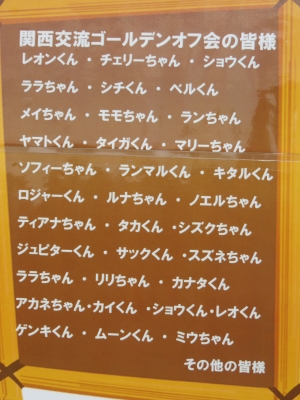 関西交流ゴールデンオフ会の皆様
レオンくん ・ チェリーちゃん ・ ショウくん
ララちゃん ・ シチくん ・ ベルくん
メイちゃん ・ モモちゃん ・ ランちゃん
ヤマトくん ・ タイガくん ・ マリーちゃん
ソフィーちゃん ・ ランマルくん ・ キタルくん
ロジャーくん ・ ルナちゃん ・ ノエルちゃん
ティアナちゃん ・ タカくん ・ シズクちゃん
ジュピターくん ・ サックくん ・ スズネちゃん
ララちゃん ・ リリちゃん ・ カナタくん
アカネちゃん・カイくん ・ショウくん・レオくん
ゲンキくん ・ ムーンくん ・ ミウちゃん
その他の皆様